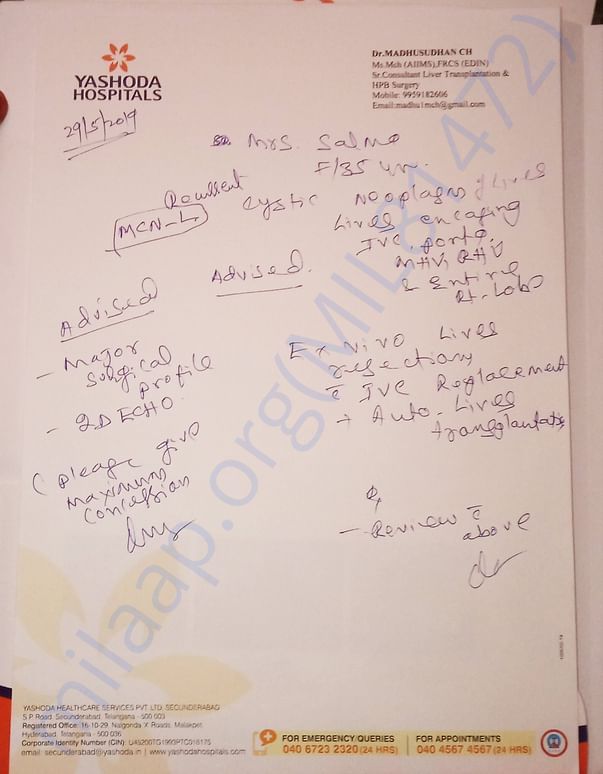 YASHODA
HOSPITALS
Dr.MADHUSUDHAN CH
Ms.Mch (AIIMS),FRCS (EDIN)
Sr.Consultant Liver Transplantation &
HPB Surgery
Mobile: 9959182606
Email:madhu1mch@gmail.com
29/5/2019
Mrs. Salma
F/35 yrs.
Recurrent
MCN-L
Cystic Neoplasm of Liver
Liver encaging
IVC, porta,
MHV, RHV
& Entire
Rt. Lobe
Advised
Advised.
- Major
Surgical
profile
- 2D ECHO.
Ex vivo Liver
resection
c̄ IVC Replacement
+ Auto-Liver
transplantation
(please give
maximum
concession
- Review c̄
above
milaap.org(MIL81472)
YASHODA HEALTHCARE SERVICES PVT LTD, SECUNDERABAD
S.P. Road, Secunderabad, Telangana - 500 003
Registered Office: 16-10-29, Nalgonda X Roads, Malakpet,
Hyderabad, Telangana - 500 036
Corporate Identity Number (CIN):
email: secunderabad@yashoda.in | www.yashodahospitals.com
FOR EMERGENCY/QUERIES
040 6723 2320 (24 HRS)
FOR APPOINTMENTS
040 4567 4567 (24 HRS)